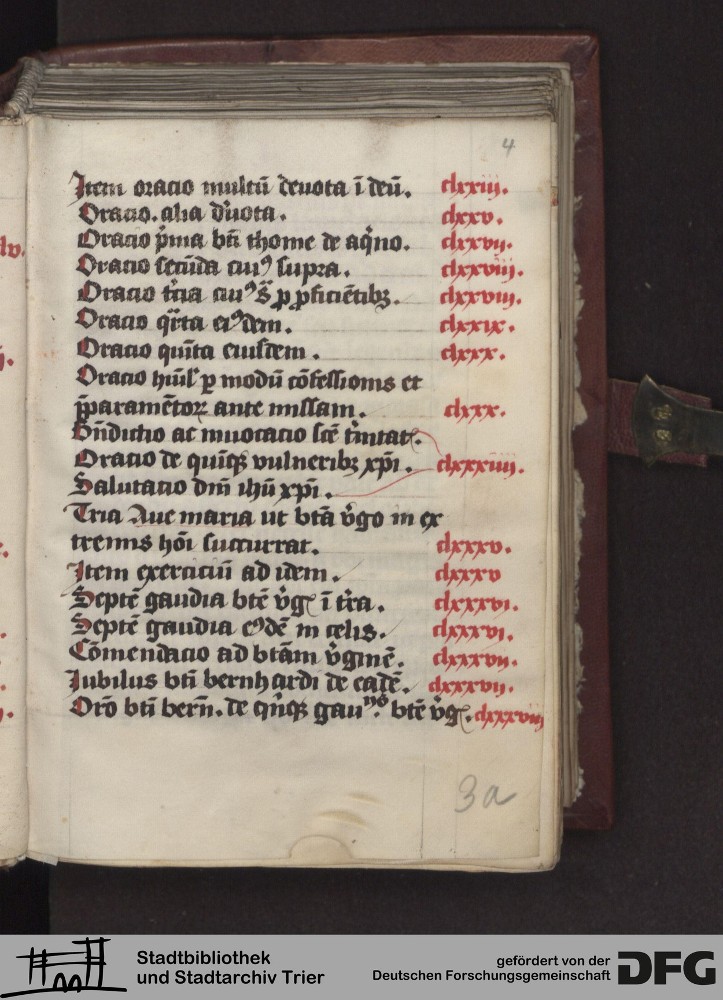 4
Item oracio multū deuota ī deū. clxxiii.
Oracio. alia d'uota. clxxv.
Oracio p̄ma bti thome de aq̄no. clxxvij.
Oracio secūda eiuꝰ supra. clxxviij.
Oracio t̄cia eiuꝰ s̄ p̱ p̱ficiētibꝫ. clxxviii.
Oracio q̄rta eiꝰdem. clxxix.
Oracio quīta eiusdem. clxxx.
Oracio hūil' p̱ modū cōfessionis et
p̄paramētoꝝ ante missam. clxxx.
Bn̄dictio ac inuocacio scē t̄nitatꝭ.
Oracio de quīqꝫ vulneribꝫ xp̄i. clxxxiiii.
Salutacio dn̄i ihū xp̄i.
Tria Aue maria ut btā v̄go in ex
tremis hōi succurrat. clxxxv.
Item exerciciū ad idem. clxxxv
Septē gaudia btē v̄gꝭ ī t̄ra. clxxxvi.
Septē gaudia eꝰdē in celis. clxxxvi.
Cōmendacio ad btām v̄ginē. clxxxvii.
Iubilus bti bernhardi de eadē. clxxxvii.
Orō bti bern̄. de qn̄qꝫ gau btē v̄gꝭ. clxxxviij
3a
Stadtbibliothek
und Stadtarchiv Trier
gefördert von der
Deutschen Forschungsgemeinschaft
DFG